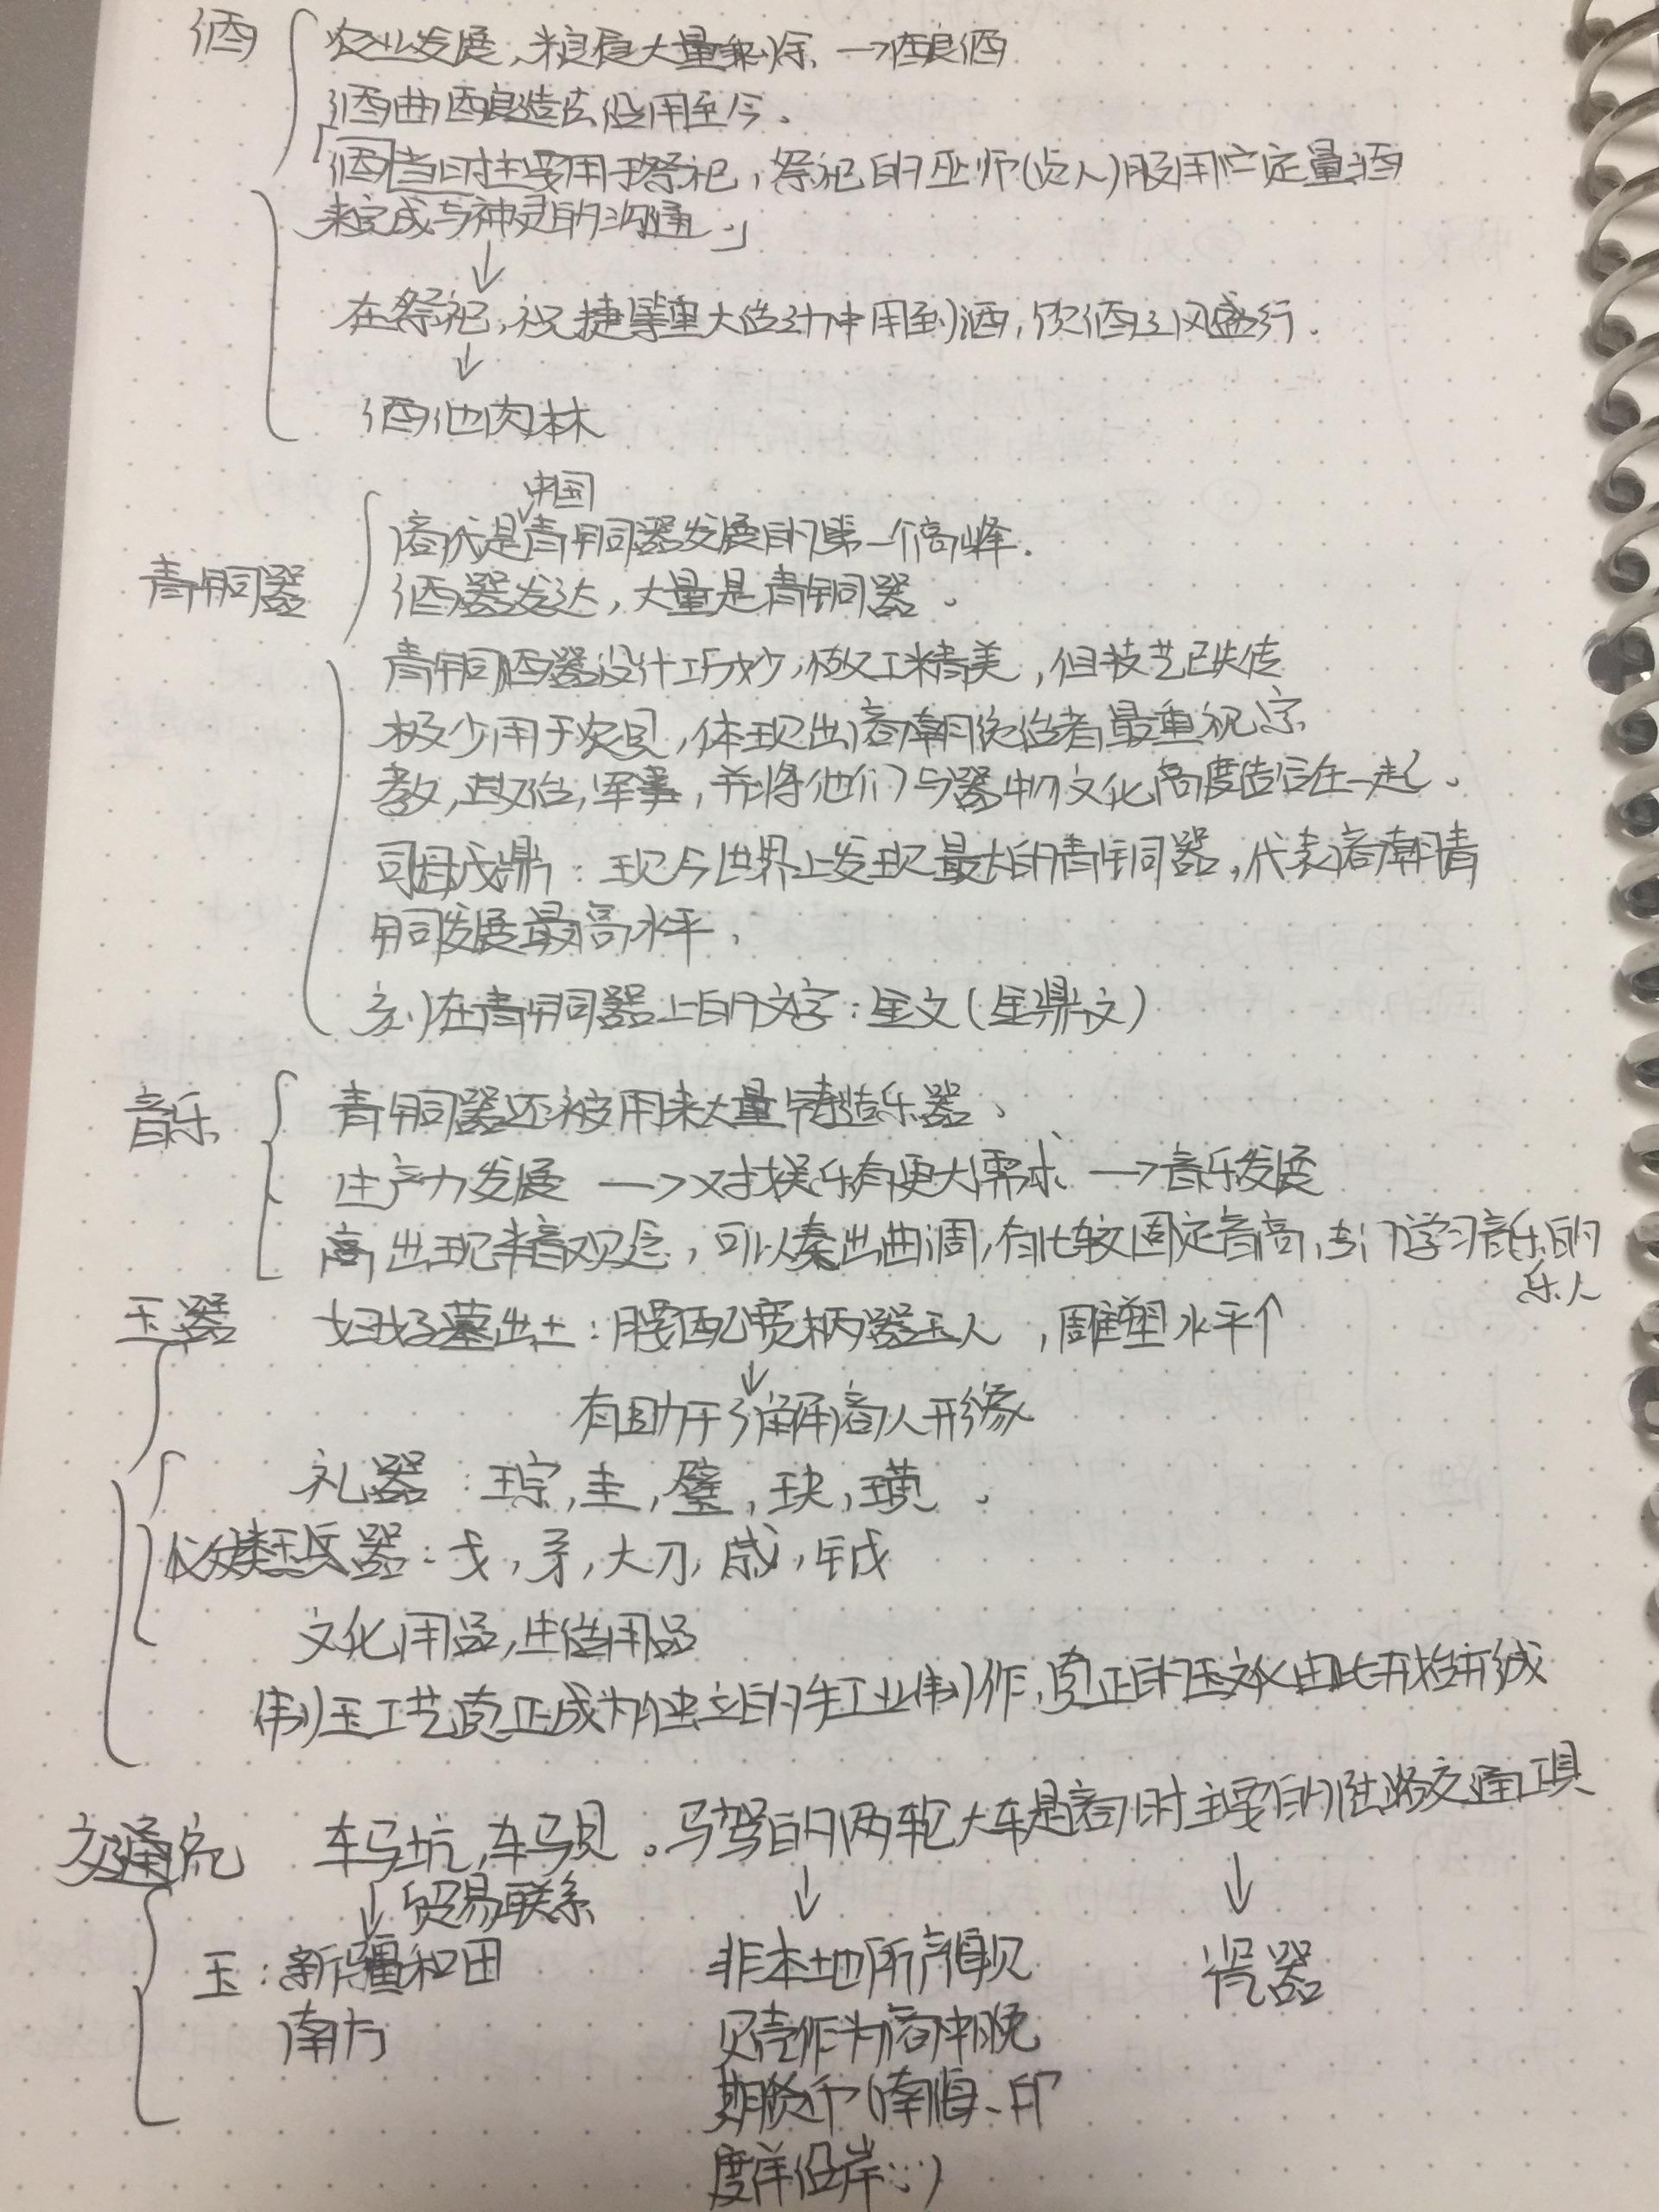 酒
农业发展、粮食大量剩余、→酿酒
酒曲酿造法沿用至今。
「酒当时主要用于祭祀，祭祀的巫师(贞人)服用一定量酒
来完成与神灵的沟通。」
↓
在祭祀，祝捷等重大活动中用到酒，饮酒之风盛行.
↓
酒池肉林
青铜器
中国
商代是青铜器发展的第一个高峰.
酒器发达，大量是青铜器。
青铜酒器设计巧妙，做工精美，但技艺已失传
极少用于农具，体现出商朝统治者最重视宗
教，政治，军事，并将他们与器物文化高度结合在一起。
司母戊鼎：现今世界上发现最大的青铜器，代表商朝青
铜发展最高水平，
刻在青铜器上的文字：金文(金鼎文)
音乐
青铜器还被用来大量铸造乐器、
生产力发展 →对娱乐有更大需求 →音乐发展
商出现半音观念，可以奏出曲调，有比较固定音高，专门学习音乐的
乐人
玉器 妇好墓出土：腰配宽柄器玉人 ，雕塑水平↑
↓
有助于了解商人形象
礼器：琮，圭，璧，玦，璜 。
仪仗类玉兵器：戈，矛，大刀，戚，钺
文化用品，生活用品
制玉工艺真正成为独立的手工业制作，真正的玉文化由此开始形成
交通 车马坑，车马具。马驾的两轮大车是商时主要的陆路交通工具
↓贸易联系 ↓ ↓
玉：新疆和田 非本地所产海贝 瓷器
南方 贝壳作为商中晚
期货币(南海、印
度洋沿岸…)